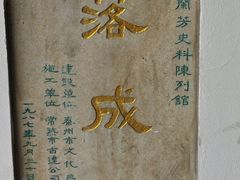 蘭芳史料陳列館
落成
建設单位 泰州市文化局
施工单位 常熟市古建公司
一九八七年九月二十日